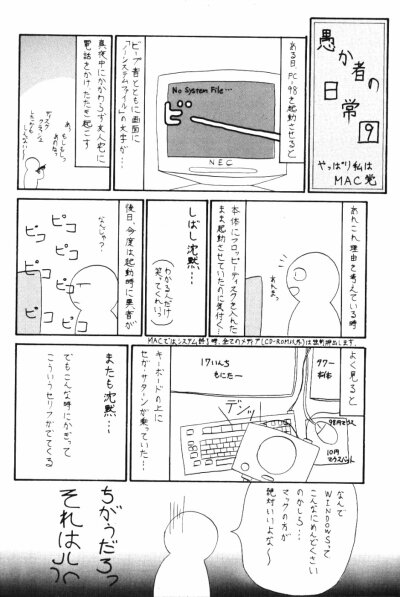 愚か者の
日常
9
やっぱり私は
MAC党
ある日PC-98を起動させると
No System File...
ビー
NEC
ビープ音とともに画面に
「ノーシステムファイル」の文字が…
真夜中にかかわらず友人宅に
電話をかけ、たたき起こす
あ、もしもしっ
あのねっ
ディスク
クラッシュ
あれこれ理由を考えている時
あれぇっ
本体にフロッピーディスクを入れた
まま起動させていたのに気付く…
しばし沈黙…
(わかる人だけ
笑ってくれいっ)
後日、今度は起動時に異音が
なんじゃっ
ピコ
ピコ
ピコ
ピコ
ピコ
MACではシステム終了時、全てのメディア(CD-ROM以外)は
よく見ると
17いんち
もにたー
タワー
本体
デンッ
98用マウス
10円
マウスパット
キーボードの上に
セガサターンが乗っていた…
またも沈黙…
でもこんな時にかぎって
こういうセリフがでてくる
なんで
WINDOWSって
こんなにめんどくさい
のかしら…
マックの方が
絶対いいよな〜
ちがうだろっ
それはっ